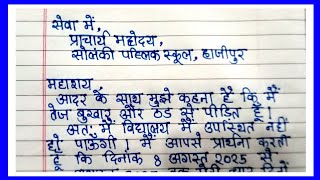 सेवा में,
प्राचार्य महोदय,
सोलंकी पब्लिक स्कूल, हाजीपुर
महाशय
आदर के साथ मुझे कहना है कि मैं
तेज बुखार और ठंड से पीड़ित हूँ।
अतः मैं विद्यालय में उपस्थित नहीं
हो पाऊंगी। मैं आपसे प्रार्थना करती
हूँ कि दिनांक 8 अगस्त 2025 से